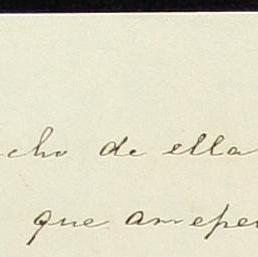 cho de ella
que arrepe